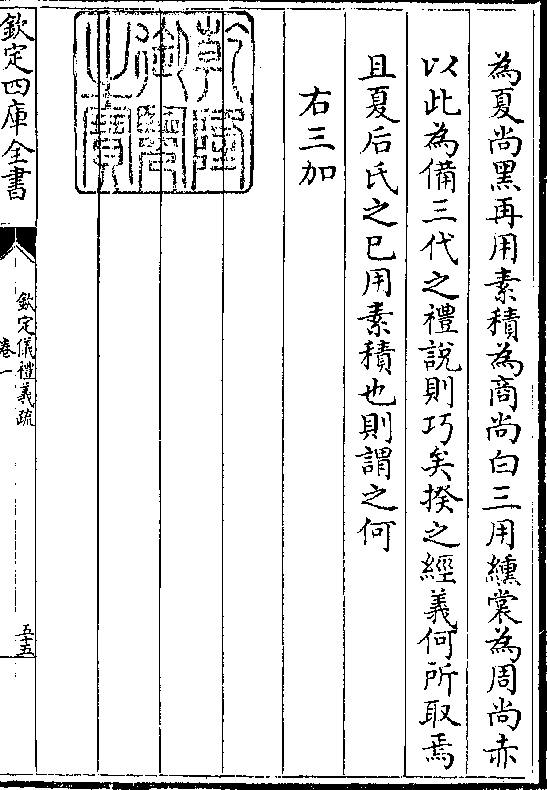 為夏尚黑再用素積為商尚白三用纁裳為周尚赤
以此為備三代之禮說則巧矣揆之經義何所取焉
且夏后氏之已用素積也則謂之何
右三加
乾隆
御覽
之寶
欽定四庫全書
欽定儀禮義疏
卷一
五十五